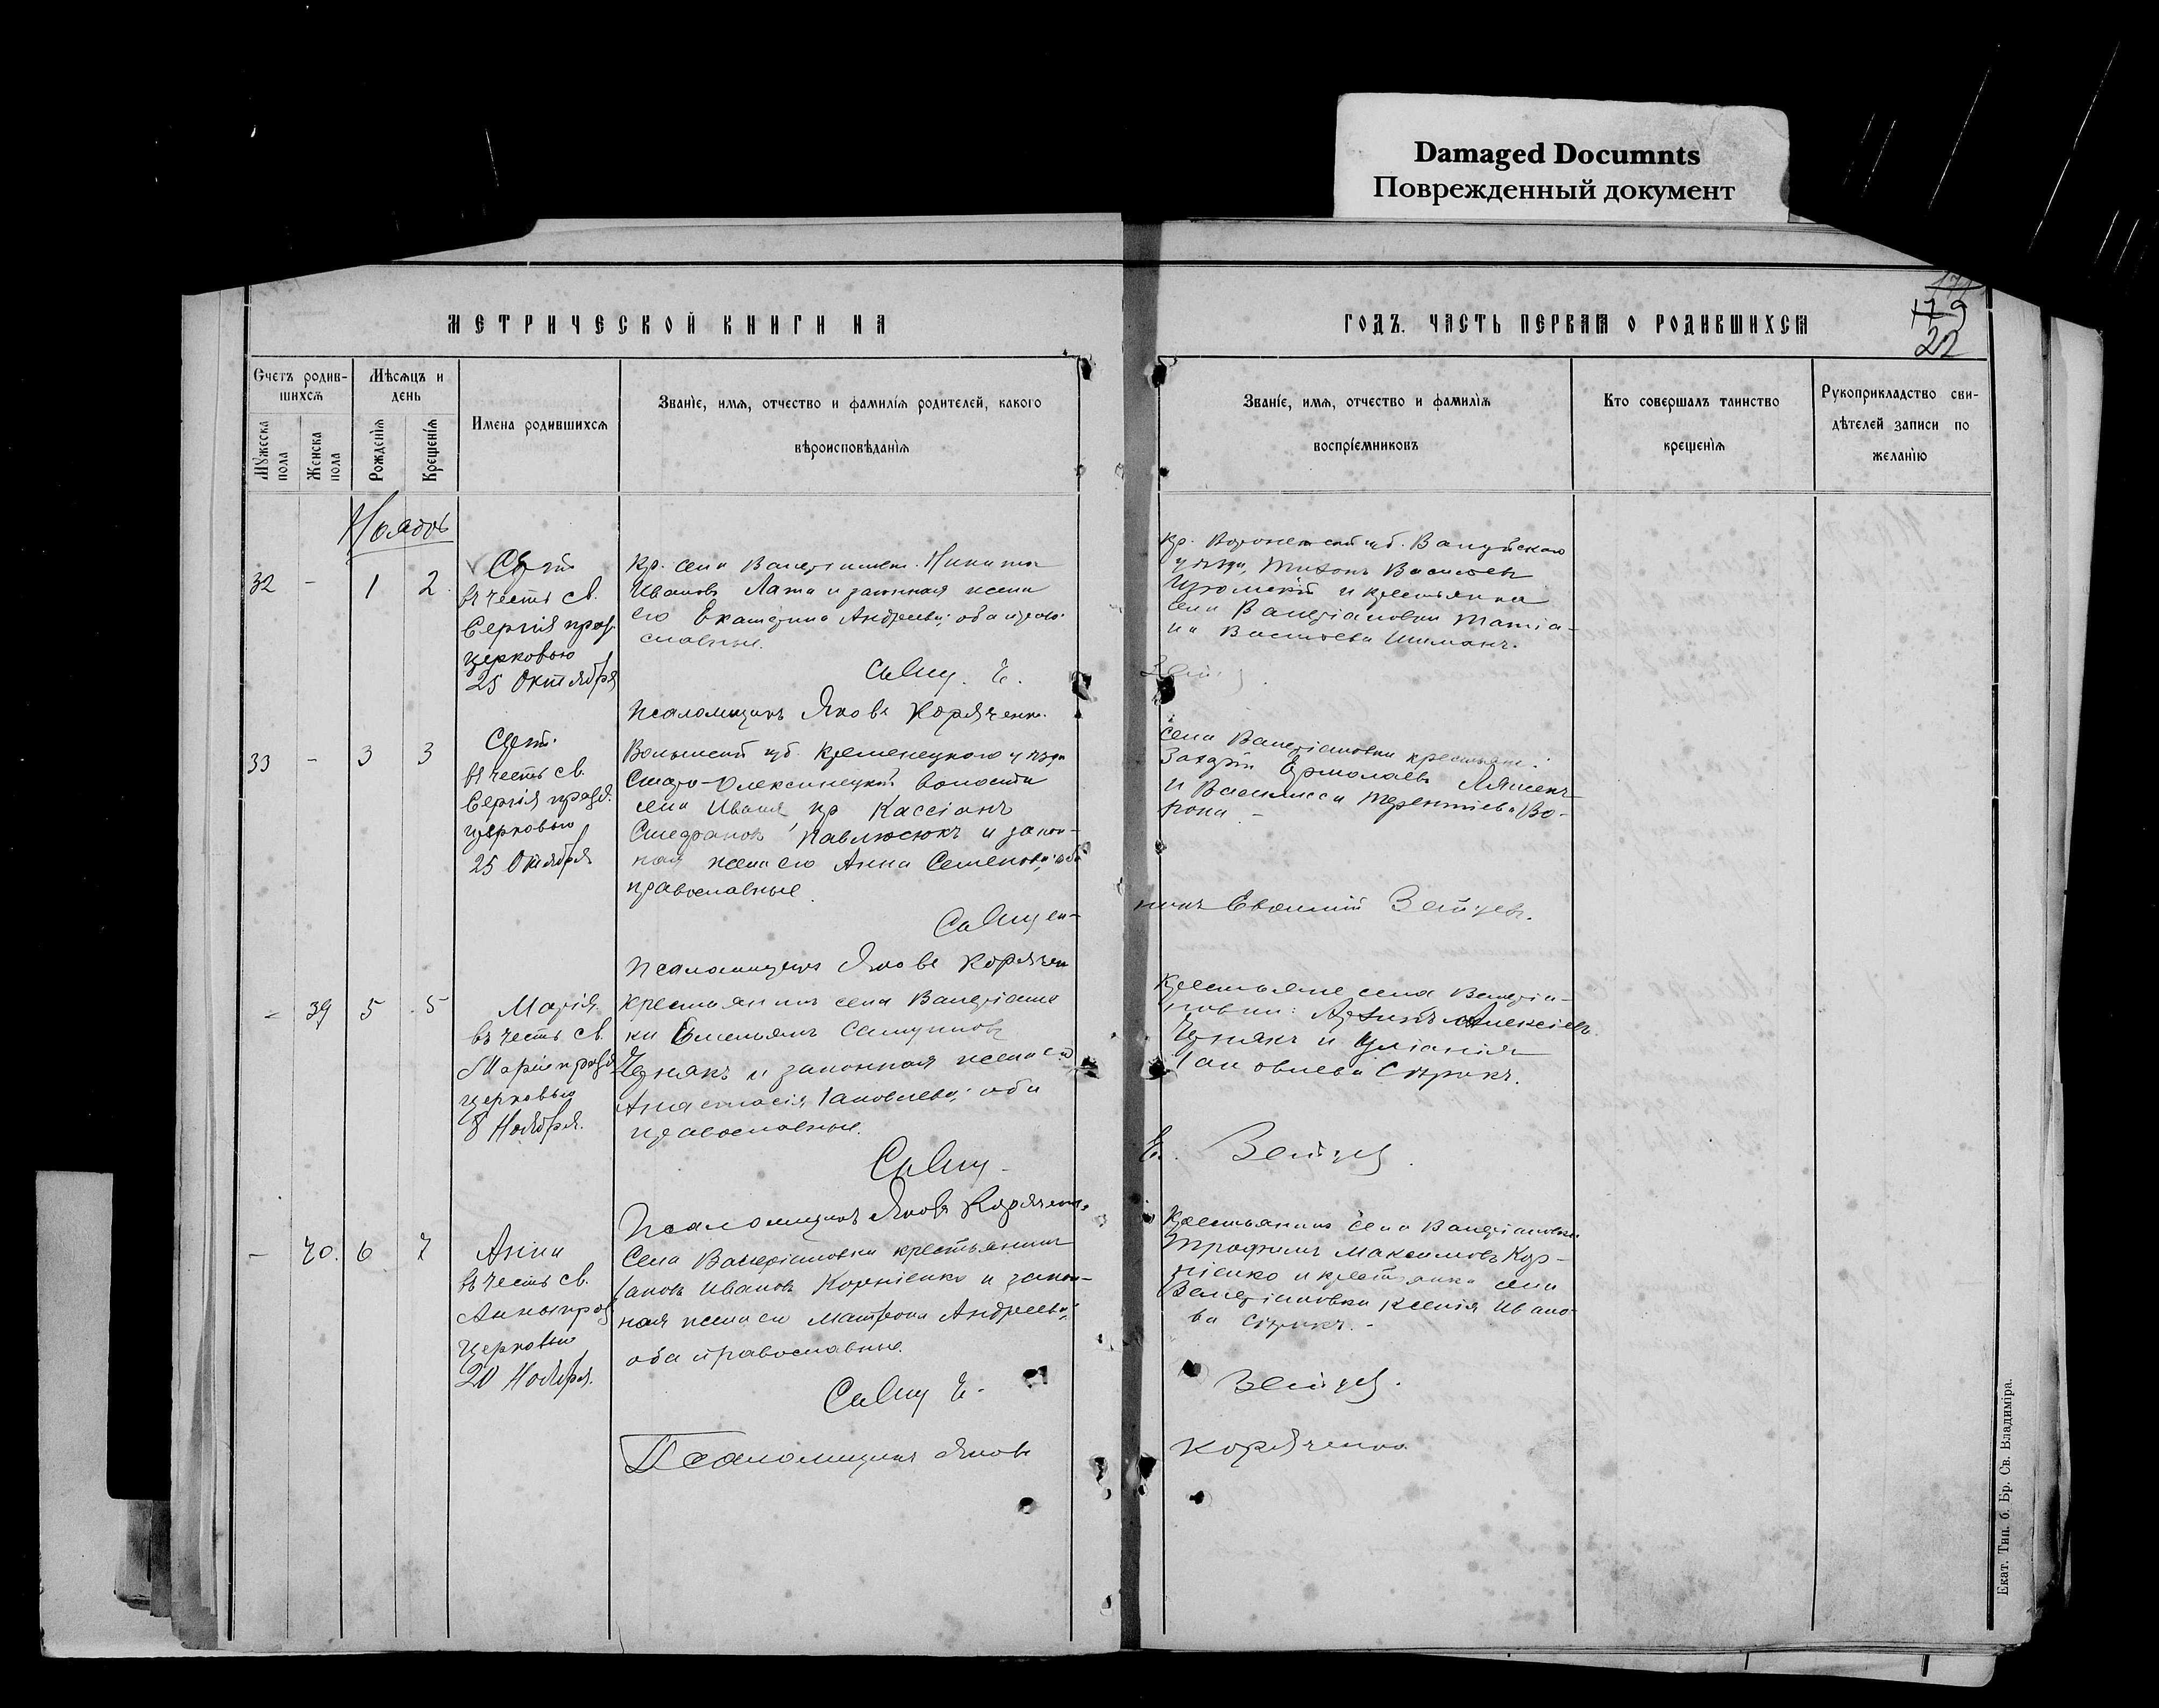 Damaged Documnts
Поврежденный документ
МЕТРИЧЕСКОЙ КНИГИ НА
ГОДЪ. ЧАСТЬ ПЕРВАЯ О РОДИВШИХСЯ
179
22
Счетъ родив-
шихся
Мѣсяцъ и
день
Мужеска
пола
Женска
пола
Рожденія
Крещенія
Имена родившихся
Званіе, имя, отчество и фамилія родителей, какого
вѣроисповѣданія
Званіе, имя, отчество и фамилія
воспріемниковъ
Кто совершалъ таинство
крещенія
Рукоприкладство сви-
дѣтелей записи по
желанію
Ноябрь
32 - 1 2
Сергій
въ честь св.
Сергія празд.
церковью
25 Октября
Кр. села Валеріановки Никита
Ивановъ Лата и законная жена
его Екатерина Андреева; оба право-
славные.
Свящ. Е.
Псаломщикъ Яковъ Коряченко.
Кр. Воронежской губ. Валуйскаго
уѣзда, Тихонъ Васильевъ
и крестьянка
села Валеріановки Татіа-
на Васильева Шиманъ.
Зайцевъ.
33 - 3 3
Сергій
въ честь св.
Сергія празд.
церковью
25 Октября
Волынской губ. Кременецкаго уѣзда
Старо-Олексинецкой волости
села Иваня, кр Кассіанъ
Стефановъ Павлюсюкъ и закон-
ная жена его Анна Семенова; оба
православные.
Священ-
Псаломщикъ Яковъ Корячен
села Валеріановки крестьяне:
Захарій Ермолаевъ Ляшенк
и Василисса Терентіева Во-
рона. -
никъ Евфимій Зайцевъ.
- 39 5 5
Марія
въ честь св.
Маріи празд.
церковью
8 Ноября.
Крестьянинъ села Валеріанов
ки Емельянъ Самуиловъ
Чернякъ и законная жена его
Анастасія Іаковлева; оба
православные.
Свящ.
Псаломщикъ Яковъ Коряченко.
Крестьяне села Валеріа-
новки: Алексіевъ
Чернякъ и Уліанія
Іаковлева Сѣрикъ.
Е. Зайцевъ.
- 40. 6 7
Анна
въ честь св.
Анны празд
церковью
20 Ноября.
Села Валеріановки крестьянинъ
Іаковъ Ивановъ Корніенко и закон-
ная жена его Матрона Андреева;
оба православные.
Свящ Е.
Псаломщикъ Яковъ
Крестьянинъ села Валеріановки
Трофимъ Максимовъ Кор-
ніенко и крестьянка села
Валеріановки Ксенія Ивано-
ва Сѣрикъ. -
Зайцевъ.
Коряченко
Екат. Тип. б. Бр. Св. Владиміра.